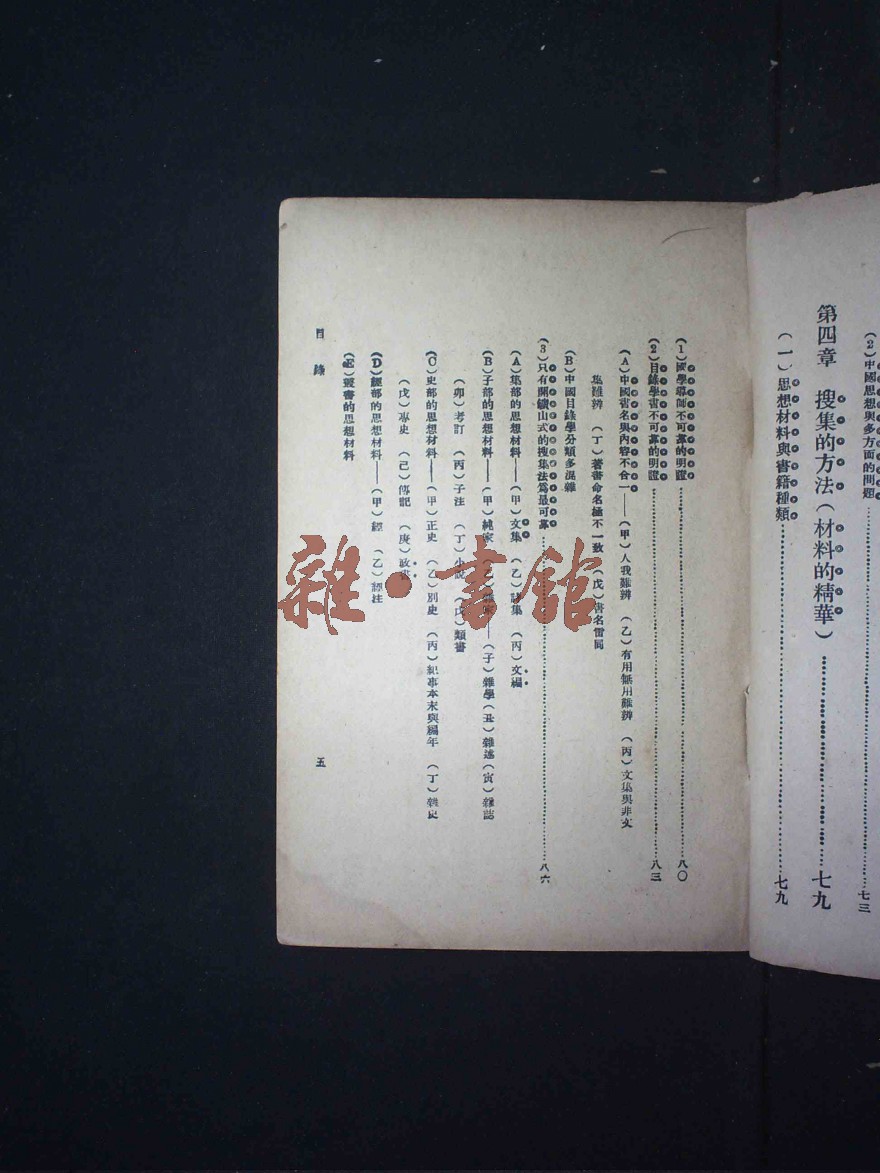 (2)中國思想與多方面的問題……七三
第四章　搜集的方法(材料的精華)……七九
(一)思想材料與書籍種類……七九
(1)國學導師不可靠的明證……八〇
(2)目錄學書不可靠的明證……八三
(A)中國書名與內容不合一——(甲)人我難辨　(乙)有用無用難辨　(丙)文集與非文
集難辨　(丁)著書命名極不一致　(戊)書名雷同
(B)中國目錄學分類多混雜
(3)只有開鑛山式的搜集法爲最可靠……八六
(A)集部的思想材料——(甲)文集　(乙)詩集　(丙)文編
(B)子部的思想材料——(甲)純家　(乙)雜家——(子)雜學(丑)雜述(寅)雜誌
(卯)考訂　(丙)子注　(丁)小說　(戊)類書
(C)史部的思想材料——(甲)正史　(乙)別史　(丙)紀事本末與編年　(丁)雜史
(戊)專史　(己)傳記　(庚)政書
(D)經部的思想材料——(甲)經　(乙)經注
(E)叢書的思想材料
目錄
五
雜·書館